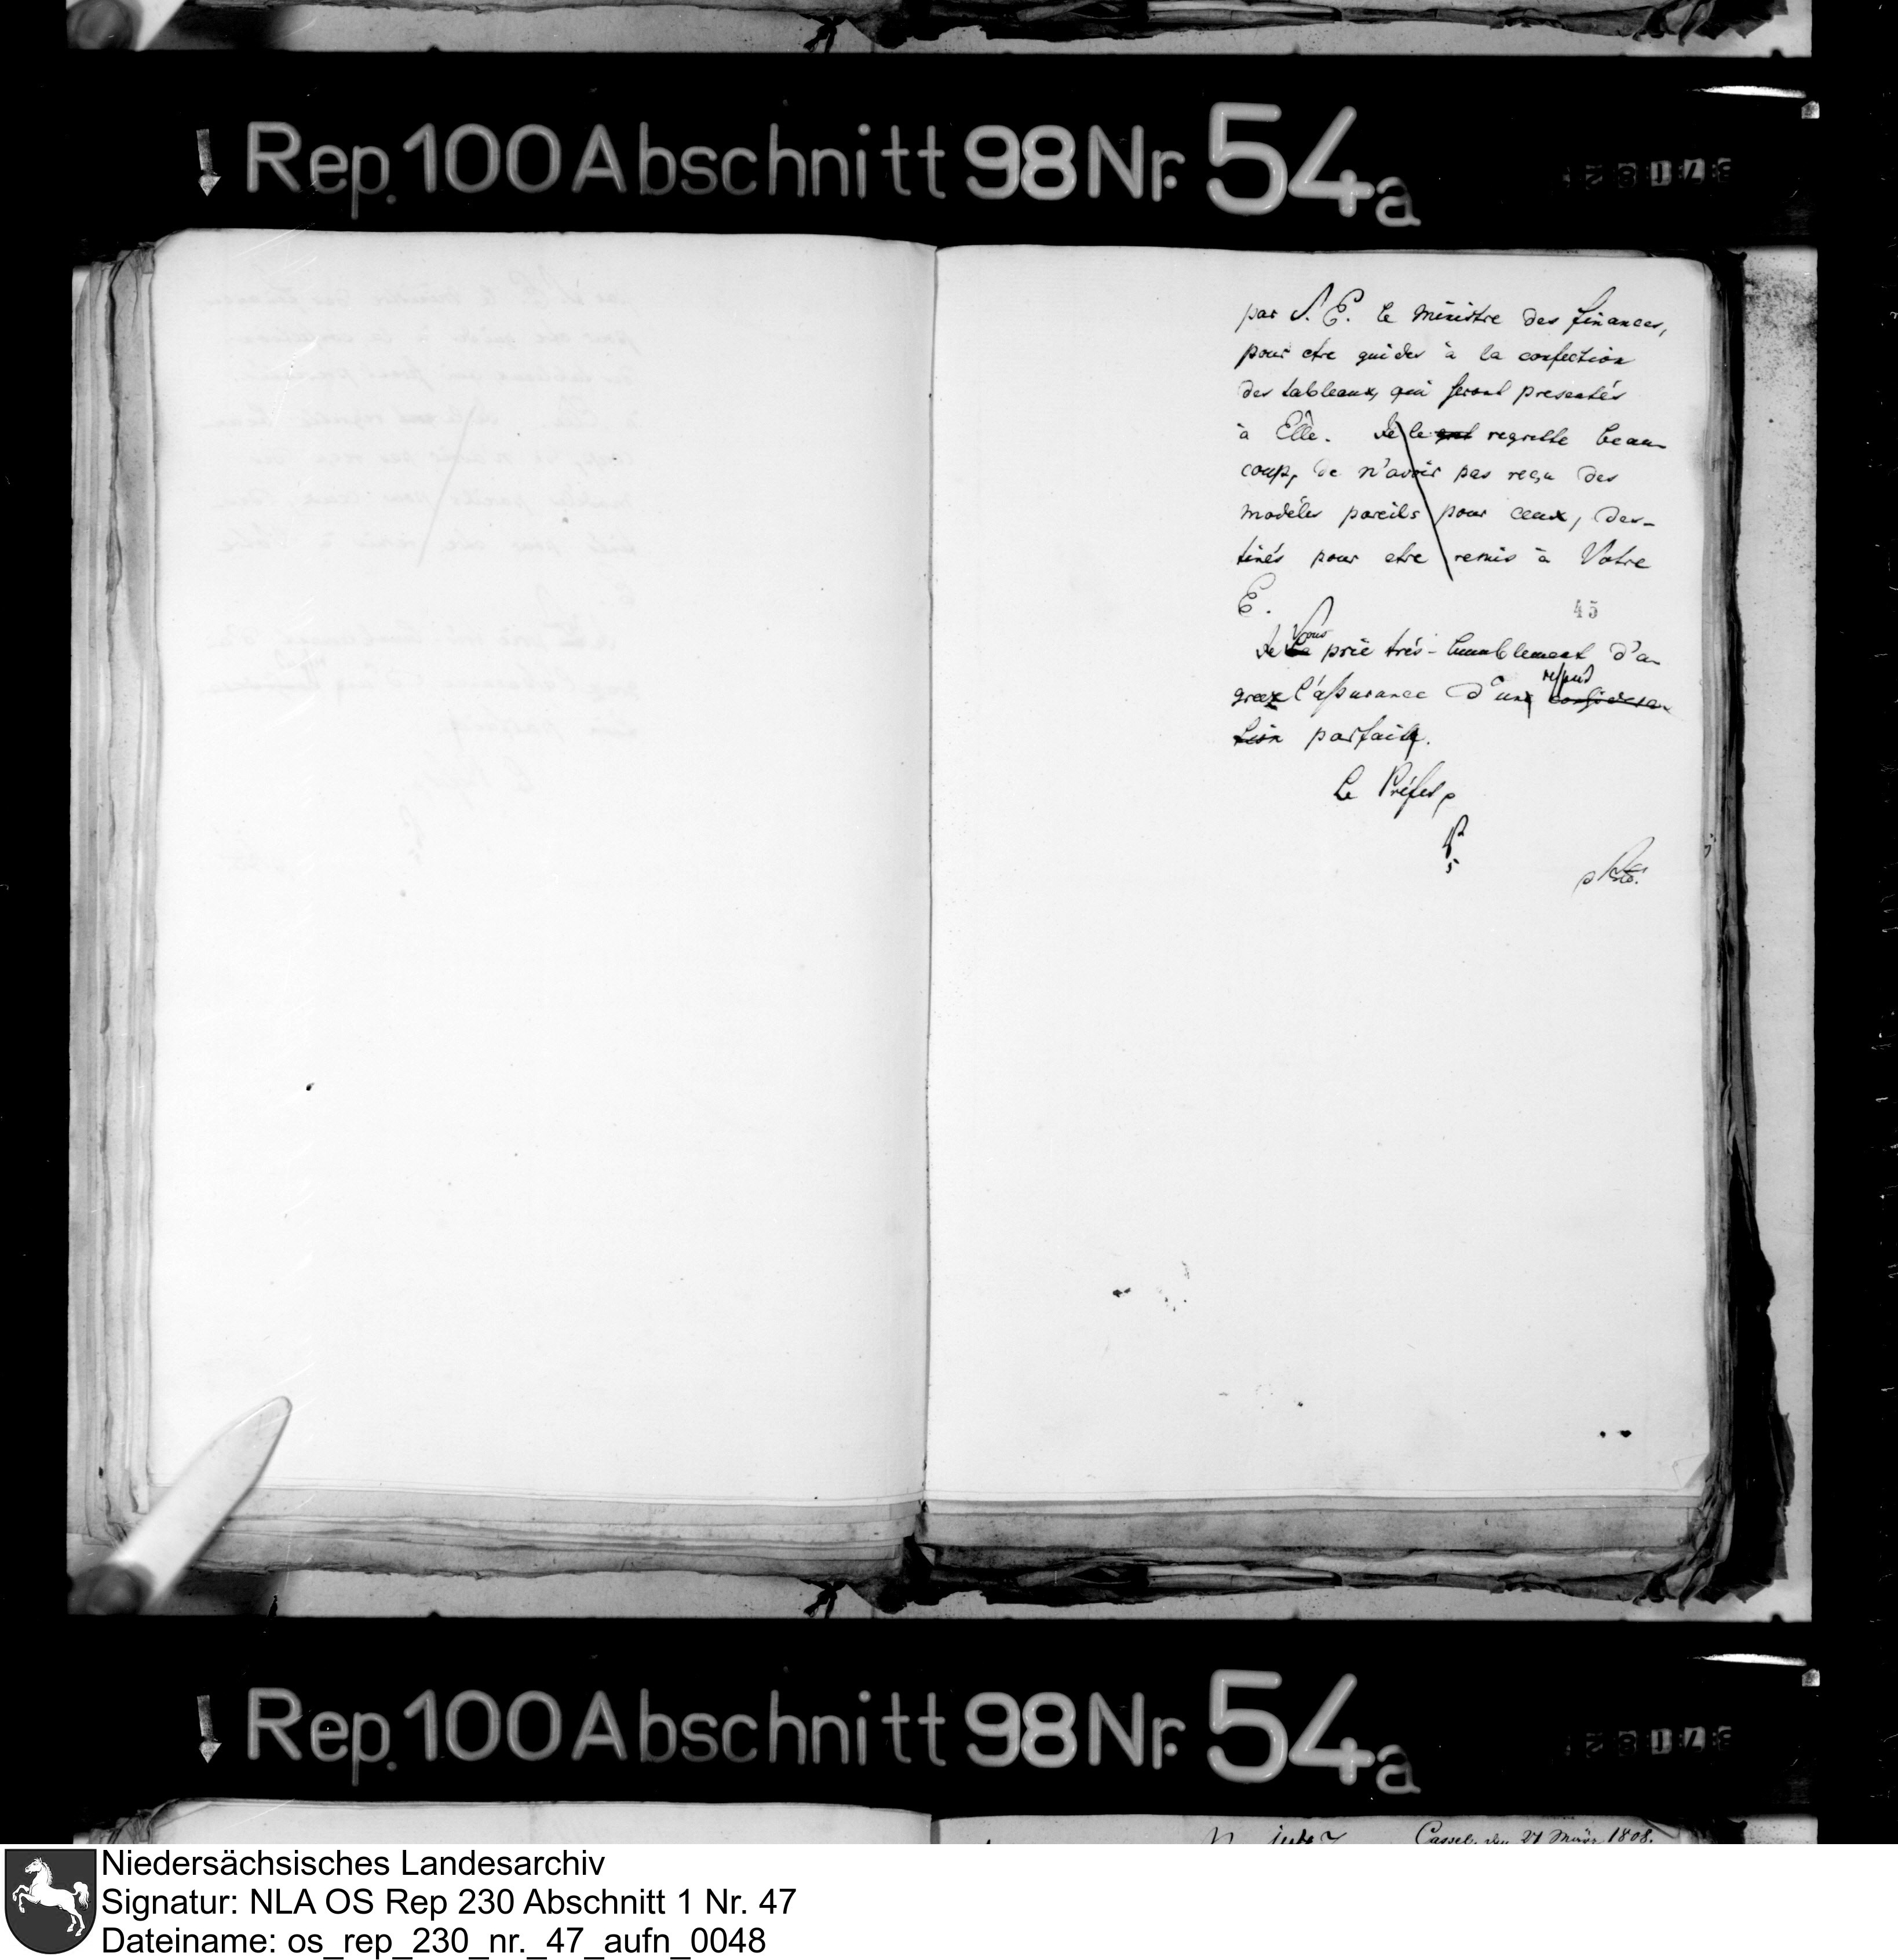 Rep. 100 Abschnitt 98 Nr. 54a
par S. E. le ministre des finances,
pour etre guidés à la confection
des tableaux, qui seront presentés
à Elle. Je le regrette beau-
coup, de n'avoir pas reçu des
modèles pareils pour ceux, des-
tinés pour etre remis à Votre
E.
45
Vous
Je prie trés-humblement d'a-
respect
gréez l'assurance d'un considera-
tion parfait.
Le Préfet
Rep. 100 Abschnitt 98 Nr. 54a
Cassel, den 27 März 1808.
Niedersächsisches Landesarchiv
Signatur: NLA OS Rep 230 Abschnitt 1 Nr. 47
Dateiname: os_rep_230_nr._47_aufn_0048